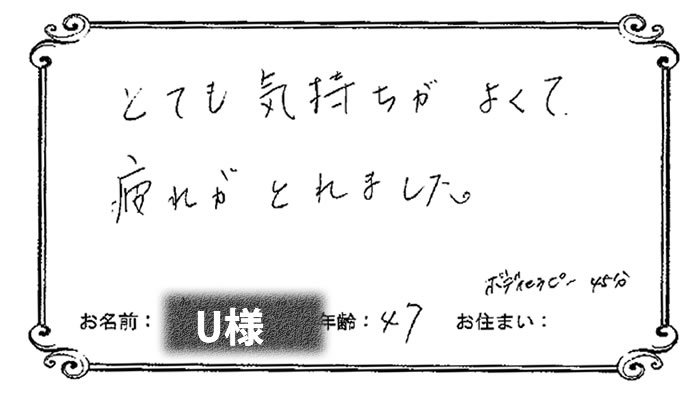 とても気持ちがよくて
疲れがとれました。
ボディセラピー 45分
お名前： U様 年齢：47 お住まい：